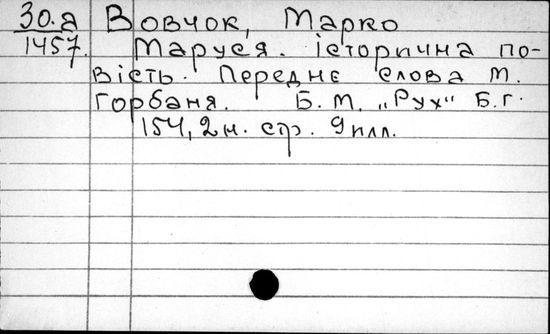 30.а Вовчок, Марко
1457. Маруся. історична по-
вість. Переднє слова М.
Горбаня. Б. М. „Рух" Б. г.
154, 2 н. стр. 9 илл.